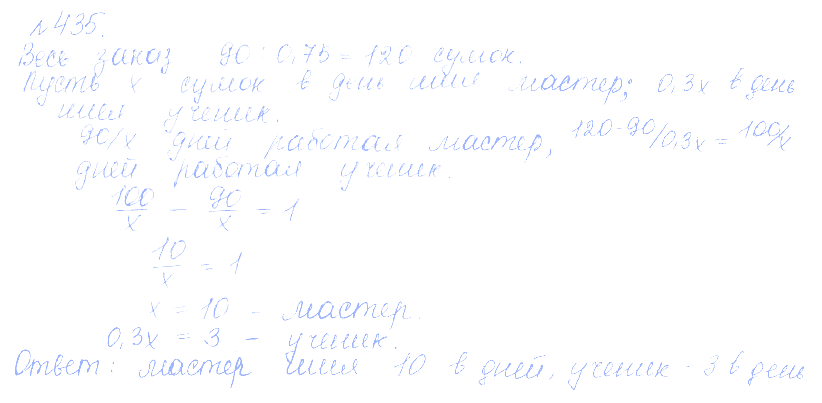 №435.
Весь заказ 90 : 0,75 = 120 сумок.
Пусть x сумок в день шил мастер; 0,3x в день
шил ученик.
90/x дней работал мастер, 120-90/0,3x = 100/x
дней работал ученик.
100/x - 90/x = 1
10/x = 1
x = 10 - мастер.
0,3x = 3 - ученик.
Ответ: мастер шил 10 в дней, ученик - 3 в день